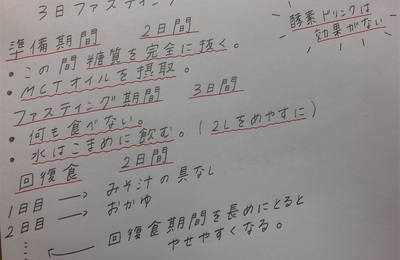 3日ファスティング
酵素ドリンクは
効果がない
準備期間 2日間
・この間糖質を完全に抜く。
・MCTオイルを摂取。
ファスティング期間 3日間
・何も食べない。
・水はこまめに飲む。(2Lをめやすに)
回復食 2日間
1日目 → みそ汁の具なし
2日目 → おかゆ
回復食期間を長めにとると
やせやすくなる。